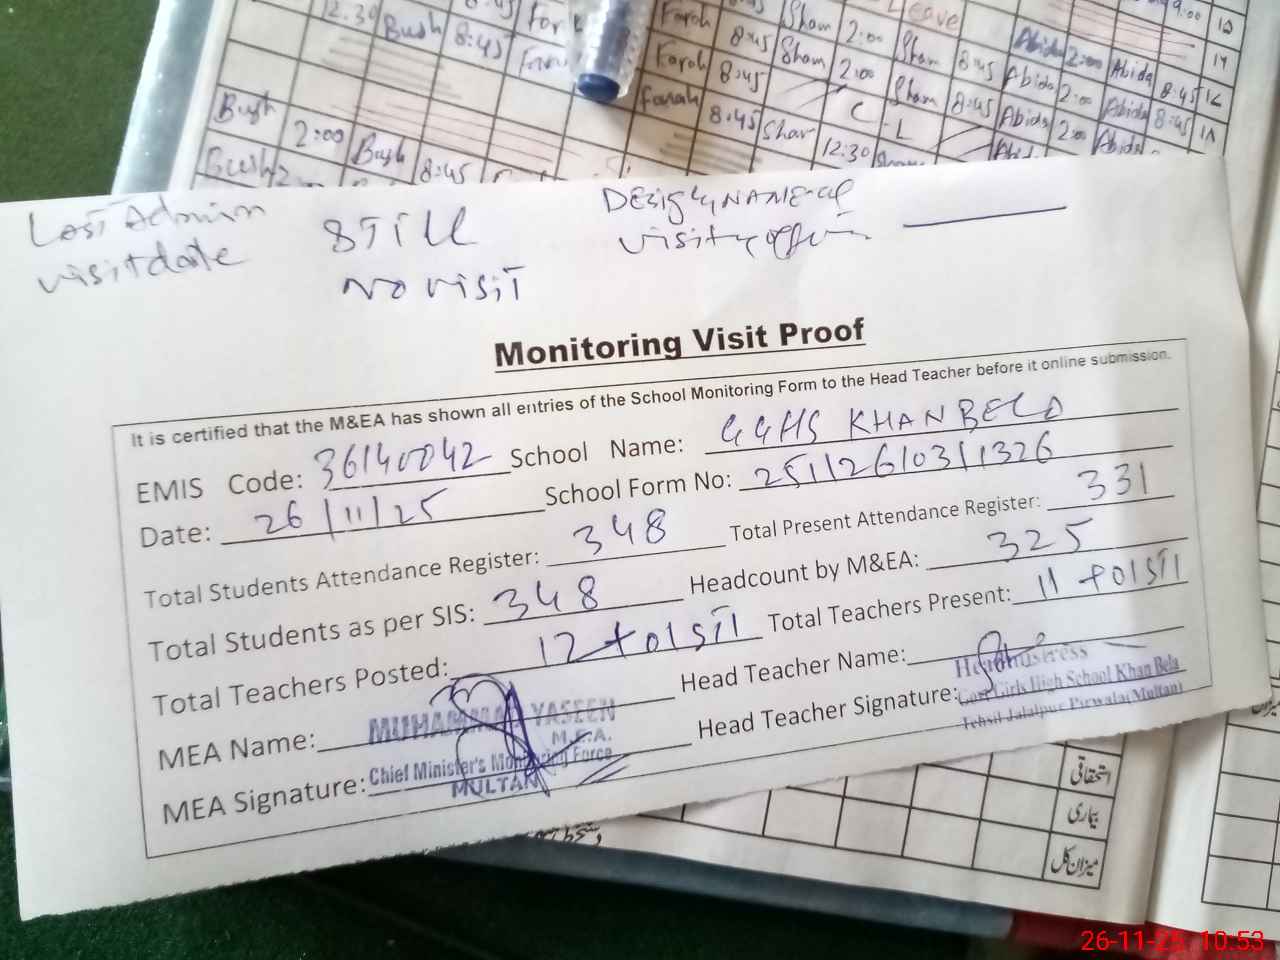 12.30 Bush 8:45 Farah Farah 8:45 Sham 2:00 Sham Leave Abida 2:00 Abida 9.00 15
Bush 8:45 Farah 8:45 Sham 2:00 Sham 8:45 Abida 2:00 Abida 8:45 16
Bush 2:00 Bush 8:45 Farah 8:45 Sham 12:30 C L Abida
Last Admin visit date STILL NO VISIT
DESig & NAME of visiting officer
Monitoring Visit Proof
It is certified that the M&EA has shown all entries of the School Monitoring Form to the Head Teacher before it online submission.
EMIS Code: 36140042 School Name: GGHS KHAN BELA
Date: 26/11/25 School Form No: 25112610311326
Total Students Attendance Register: 348 Total Present Attendance Register: 331
Total Students as per SIS: 348 Headcount by M&EA: 325
Total Teachers Posted: 12 + 01 STI Total Teachers Present: 11 + 01 STI
MEA Name: MUHAMMAD YASEEN Head Teacher Name:
M.E.A.
MEA Signature: Chief Minister's Monitoring Force Head Teacher Signature:
MULTAN
Headmistress
Govt Girls High School Khan Bela
Tehsil Jalalpur Pirwala(Multan)
استحقاقی
بیماری
میزان کل
26-11-25 10:53